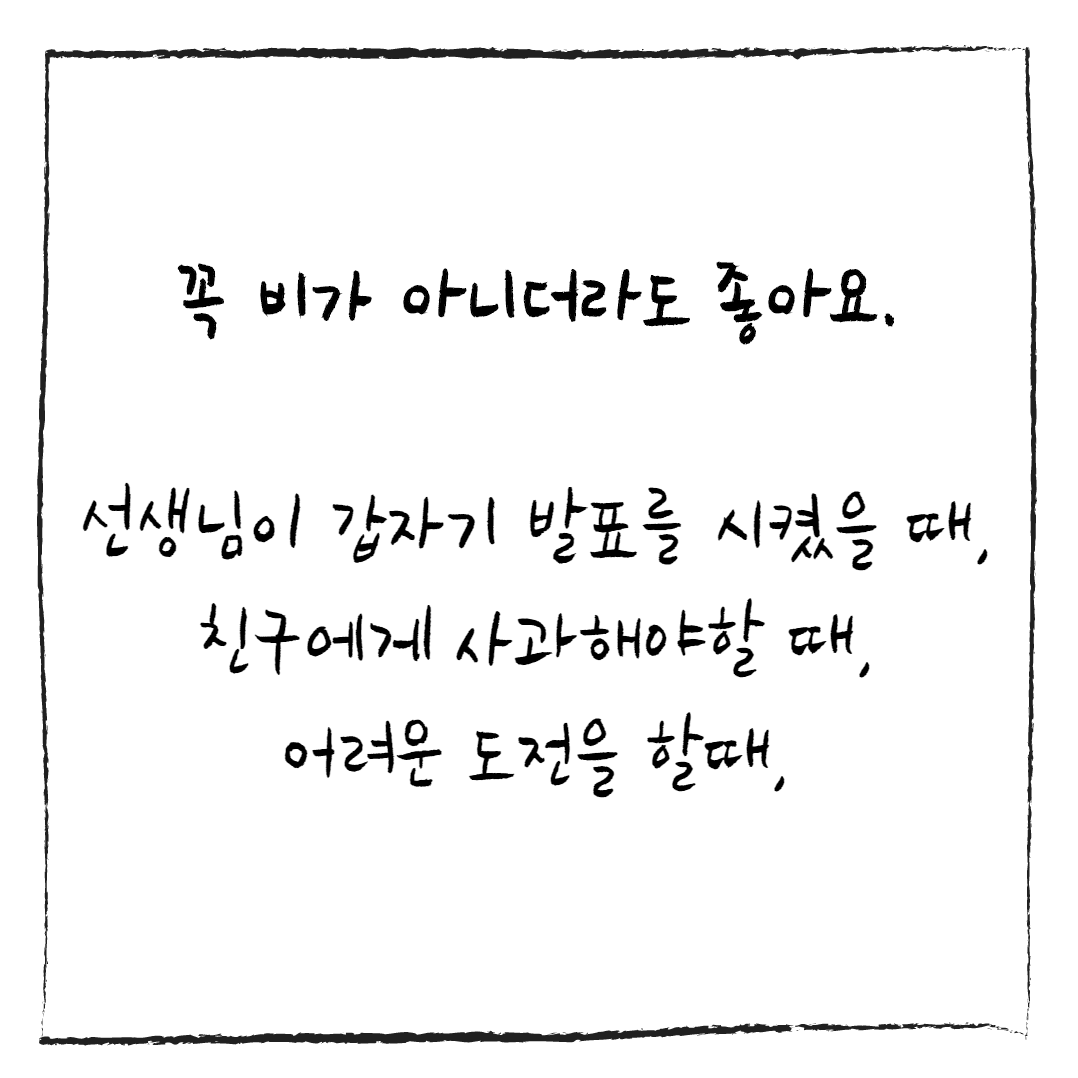 꼭 비가 아니더라도 좋아요.
선생님이 갑자기 발표를 시켰을 때,
친구에게 사과해야할 때,
어려운 도전을 할때,